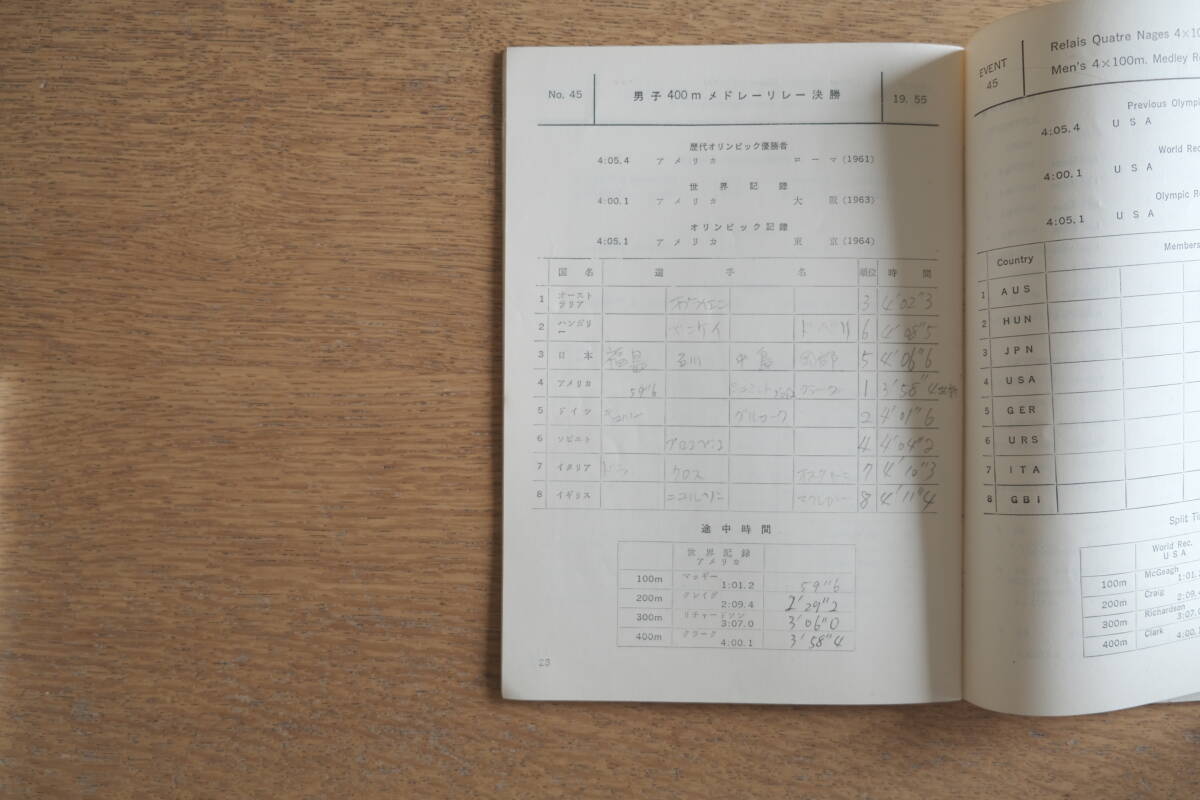 No. 45 男子400mメドレーリレー決勝 19.55
歴代オリンピック優勝者
4:05.4 アメリカ ローマ(1961)
世界記録
4:00.1 アメリカ 大阪(1963)
オリンピック記録
4:05.1 アメリカ 東京(1964)
国名 選手名 順位 時間
1 オーストラリア 3 4'02"3
2 ハンガリー 6 4'08"5
3 日本 福島 石川 中島 岡部 5 4'06"6
4 アメリカ 59"6 1 3'58"4
5 ドイツ 2 4'01"6
6 ソビエト 4 4'04"2
7 イタリア クロス 7 4'10"3
8 イギリス 8 4'11"4
途中時間
世界記録
アメリカ
100m マッギー 1:01.2 59"6
200m クレイグ 2:09.4 2'29"2
300m リチャードソン 3:07.0 3'06"0
400m クラーク 4:00.1 3'58"4
23
EVENT 45
Relais Quatre Nages
Men's 4×100m. Medley
Previous
4:05.4 USA
World
4:00.1 USA
Olympic
4:05.1 USA
Country Members
1 AUS
2 HUN
3 JPN
4 USA
5 GER
6 URS
7 ITA
8 GBI
Split
World Rec.
USA
100m McGeagh
200m Craig
300m Richardson
400m Clark